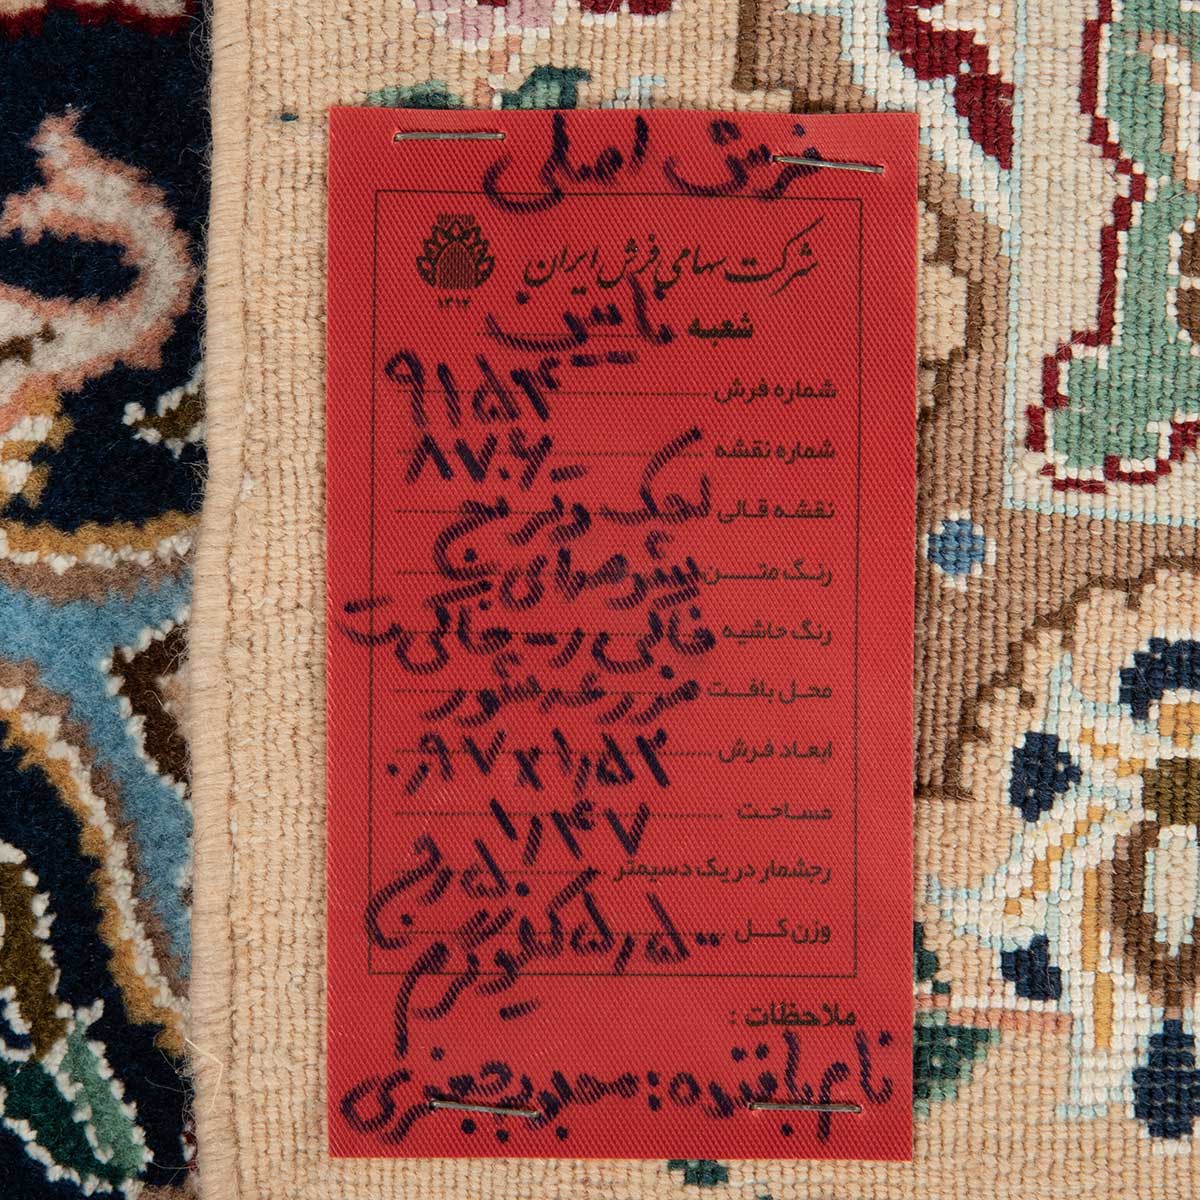 فرش اصلی
شرکت سهامی فرش ایران
۱۳۱۴
شعبه نائین
شماره فرش ۹۱۵۴
شماره نقشه ۸۷۰۶
نقشه قالی لچک و ترنج
رنگ متن سرمه‌ای
رنگ حاشیه خاکی
محل بافت مزرعه شور
ابعاد فرش ۱٫۵۲×۰٫۹۷
مساحت ۱٫۴۷
رجشمار در یک دسیمتر ۵۰ رج
وزن کل ۵٫۵۰۰ کیلوگرم
ملاحظات :
نام بافنده : محبوبه جعفری